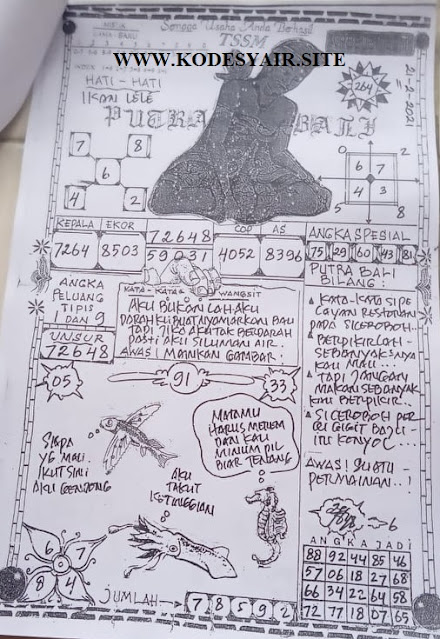 Semoga Usaha Anda Berhasil
TSSM
WWW.KODESYAIR.SITE
HATI - HATI
IKAN LELE
264
21-2-2021
PUTRA BALI
7 8
6
4 2
0 2
6 7
4 3
5 8
KEPALA EKOR 72648 COP AS
7264 8503 59031 4052 8396
ANGKA SPESIAL
75 29 60 43 81
ANGKA
PELUANG
TIPIS
1 DAN 9
UNSUR
72648
KATA - KATA WANGSIT
AKU BUKAN LAH AKU
TAPI JIKA AKATAK BERDARAH
PASTI AKU SILUMAN AIR.
AWAS! MAINKAN GAMBAR!
PUTRA BALI
BILANG:
KATA-KATA SIPE
LAYAN RESTORAN
PADA SICEROBOH..
BERPIKIRLAH -
SEBANYAK2NYA
KAU MAU...
TAPI JANGAN
MAKAN SEBANYAK
KAU BERPIKIR..
SICEROBOH PER
CU GIGIT BADU -
ITU KONYOL....
AWAS! SUATU -
PERMAINAN..!
05
91
33
SIAPA
YG MAU.
IKUT SINI
AKU GENDONG
AKU
TAKUT
KETINGGIAN
MATAMU
HARUS MEREM
DAN KAU
MINUM PIL
BIAR TENANG
6
6 7
8 4
JUMLAH 7 8 5 9 2
ANGKA JADI
88 92 44 85 46
57 06 18 27 68
66 34 22 64 58
72 77 18 07 65